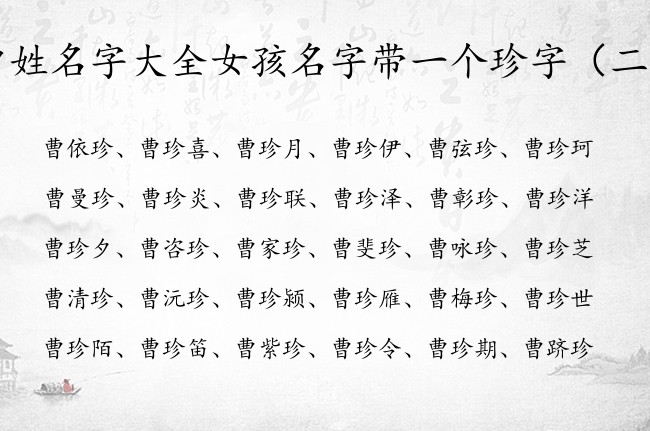 姓名字大全女孩名字带一个珍字（二
曹依珍、曹珍喜、曹珍月、曹珍伊、曹弦珍、曹珍珂
曹曼珍、曹珍炎、曹珍联、曹珍泽、曹彰珍、曹珍洋
曹珍夕、曹咨珍、曹家珍、曹斐珍、曹咏珍、曹珍芝
曹清珍、曹沅珍、曹珍颍、曹珍雁、曹梅珍、曹珍世
曹珍陌、曹珍笛、曹紫珍、曹珍令、曹珍期、曹跻珍